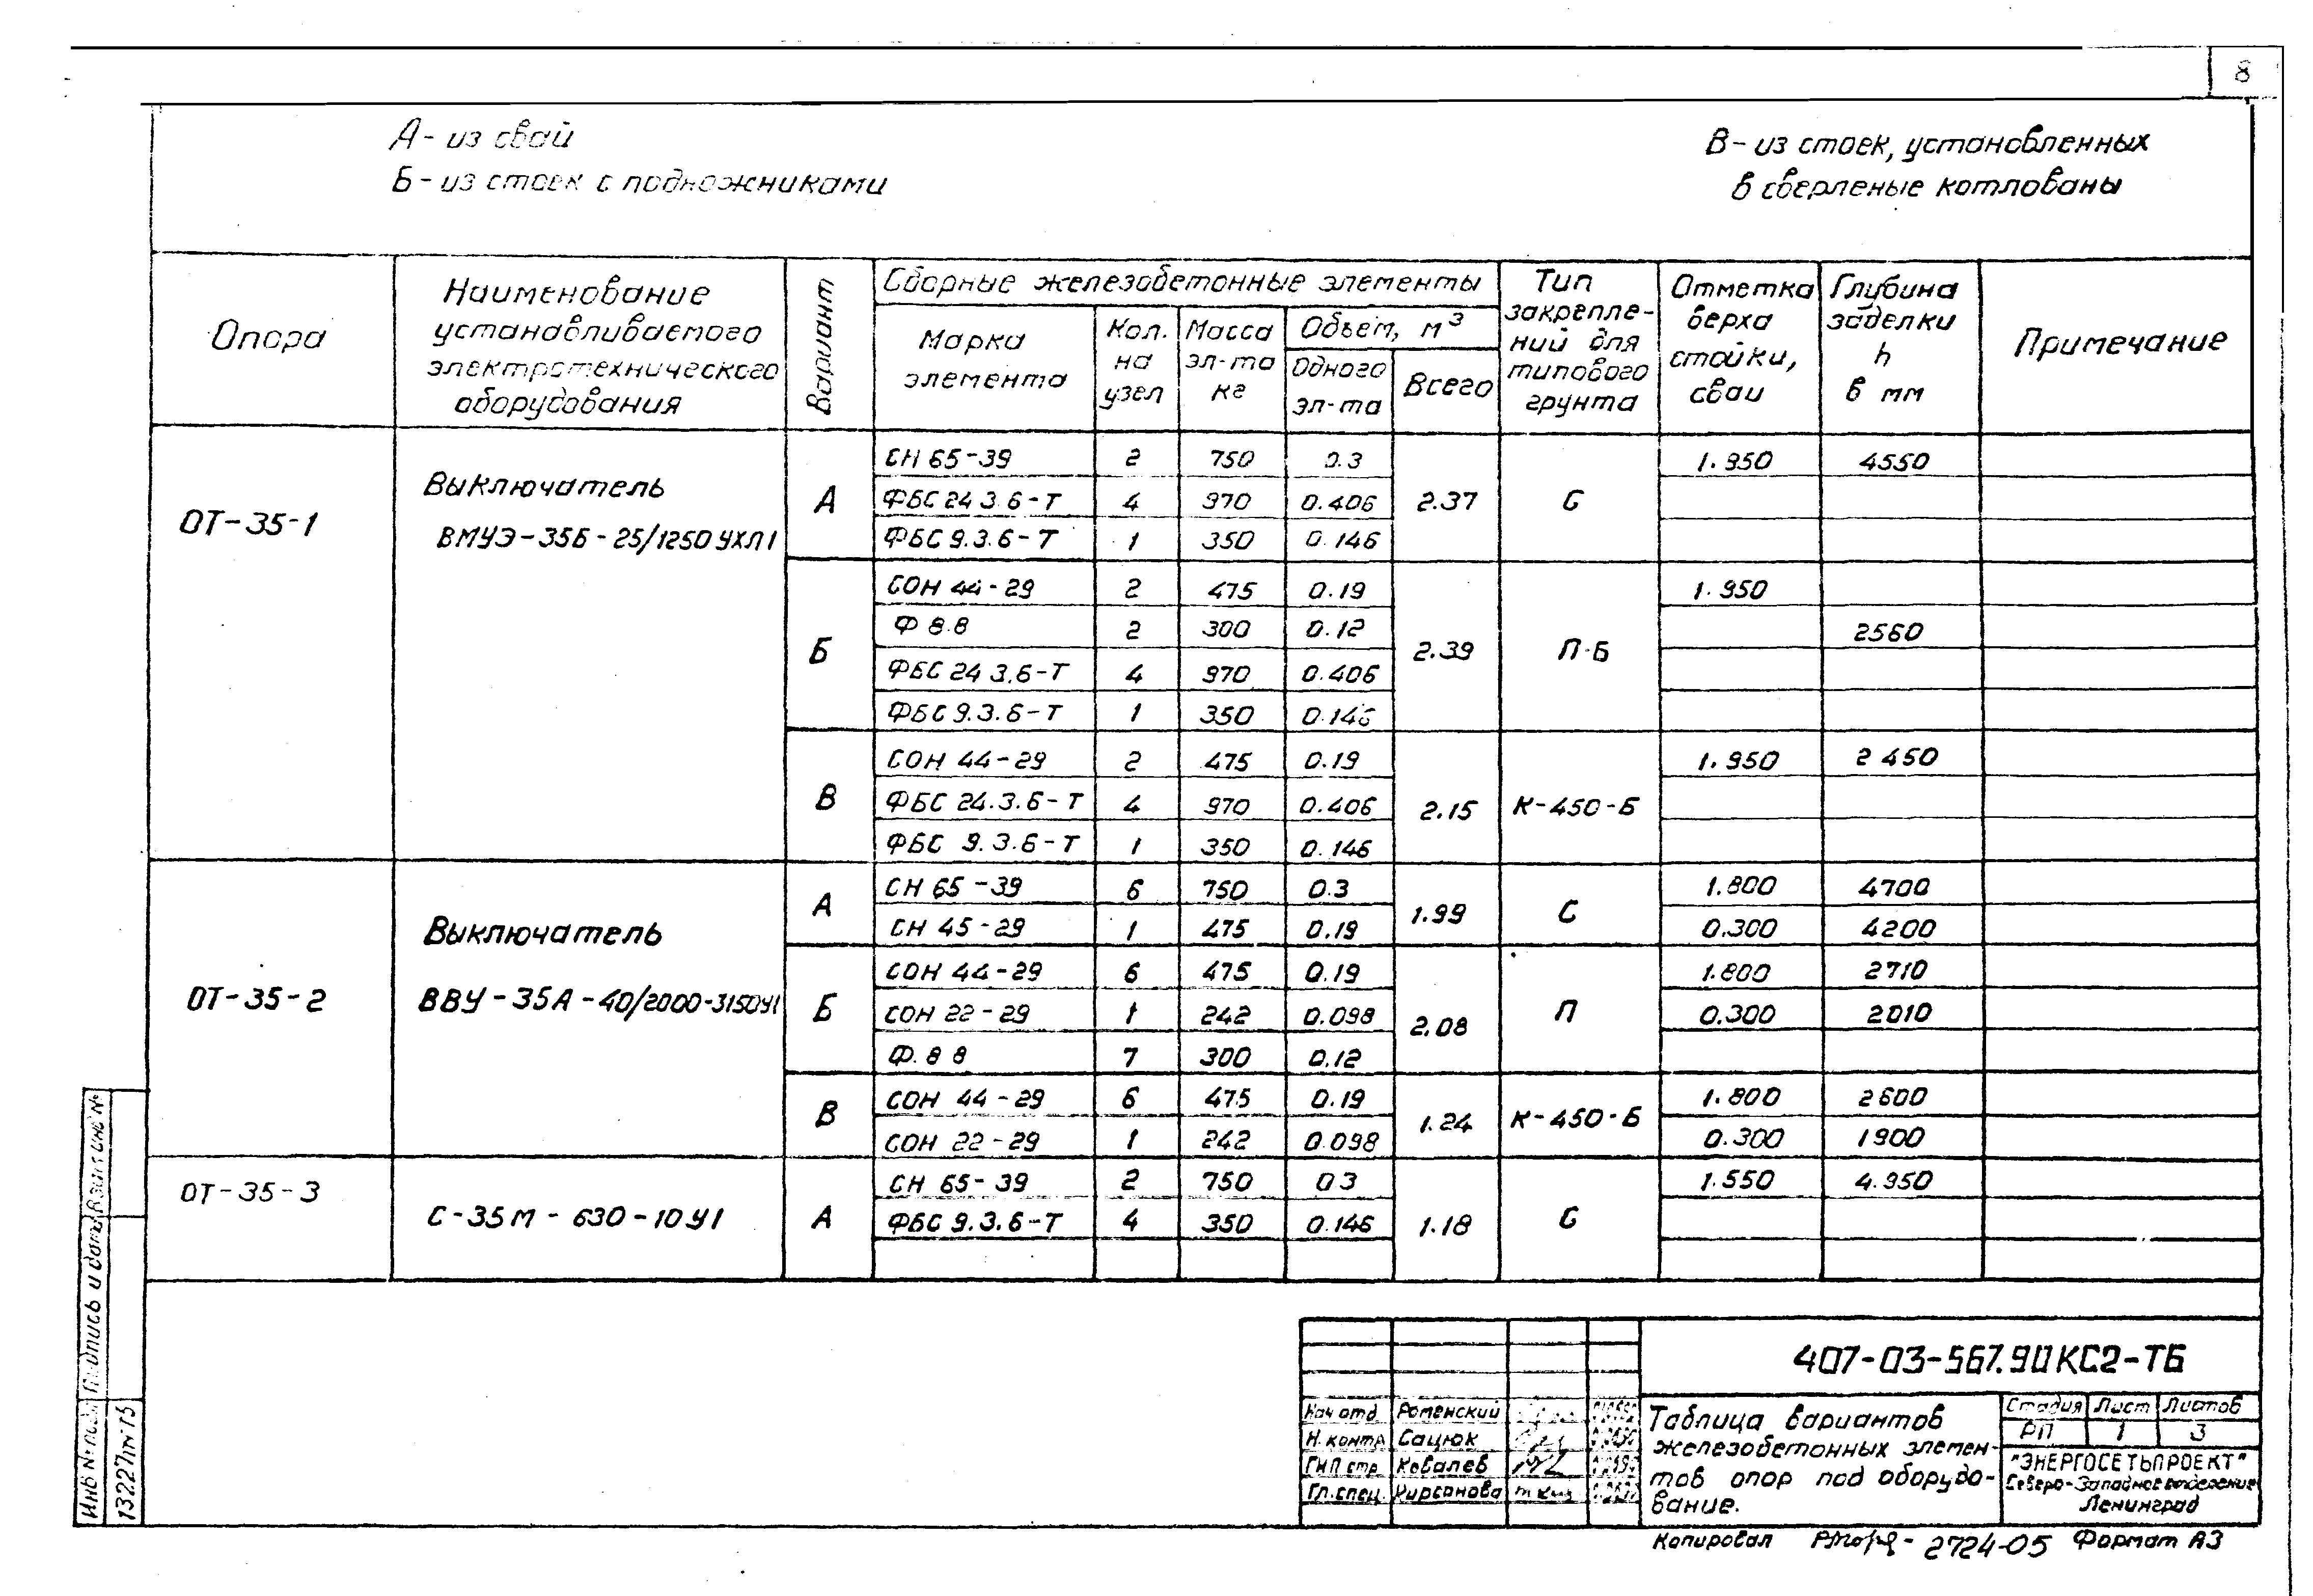 8
А- из свай
Б- из стоек с подножниками
В- из стоек, установленных
в сверленые котлованы
Опора
Наименование
устанавливаемого
электротехнического
оборудования
Вариант
Сборные железобетонные элементы
Марка
элемента
Кол.
на
узел
Масса
эл-та
кг
Объем, м³
Одного
эл-та
Всего
Тип
закрепле-
ний для
типового
грунта
Отметка
верха
стойки,
сваи
Глубина
заделки
h
в мм
Примечание
ОТ-35-1
Выключатель
ВМУЭ-35Б-25/1250УХЛ1
А
СН 65-39 2 750 0.3 1.950 4550
ФБС 24 3.6-Т 4 970 0.406 2.37 С
ФБС 9.3.6-Т 1 350 0.146
Б
СОН 44-29 2 475 0.19 1.950
Ф 8.8 2 300 0.12 2560
2.39 П-Б
ФБС 24 3.6-Т 4 970 0.406
ФБС 9.3.6-Т 1 350 0.146
В
СОН 44-29 2 475 0.19 1.950 2450
ФБС 24.3.6-Т 4 970 0.406 2.15 К-450-Б
ФБС 9.3.6-Т 1 350 0.146
ОТ-35-2
Выключатель
ВВУ-35А-40/2000-3150У1
А
СН 65-39 6 750 0.3 1.800 4700
1.99 С
СН 45-29 1 475 0.19 0.300 4200
Б
СОН 44-29 6 475 0.19 1.800 2710
СОН 22-29 1 242 0.098 2.08 П 0.300 2010
Ф.8 8 7 300 0.12
В
СОН 44-29 6 475 0.19 1.800 2600
1.24 К-450-Б
СОН 22-29 1 242 0.098 0.300 1900
ОТ-35-3
С-35М-630-10У1
А
СН 65-39 2 750 0 3 1.550 4.950
ФБС 9.3.6-Т 4 350 0.146 1.18 С
407-03-567.90КС2-ТБ
Нач отд Роменский
Н.контр Сацюк
ГИП стр Ковалев
Гл.спец. Кирсанова
Таблица вариантов
железобетонных элемен-
тов опор под оборудо-
вание.
Стадия Лист Листов
РП 1 3
"ЭНЕРГОСЕТЬПРОЕКТ"
Северо-Западное отделение
Ленинград
Копировал 2724-05 Формат А3
Инв № подл Подпись и дата Взам инв №
13227тм-т5